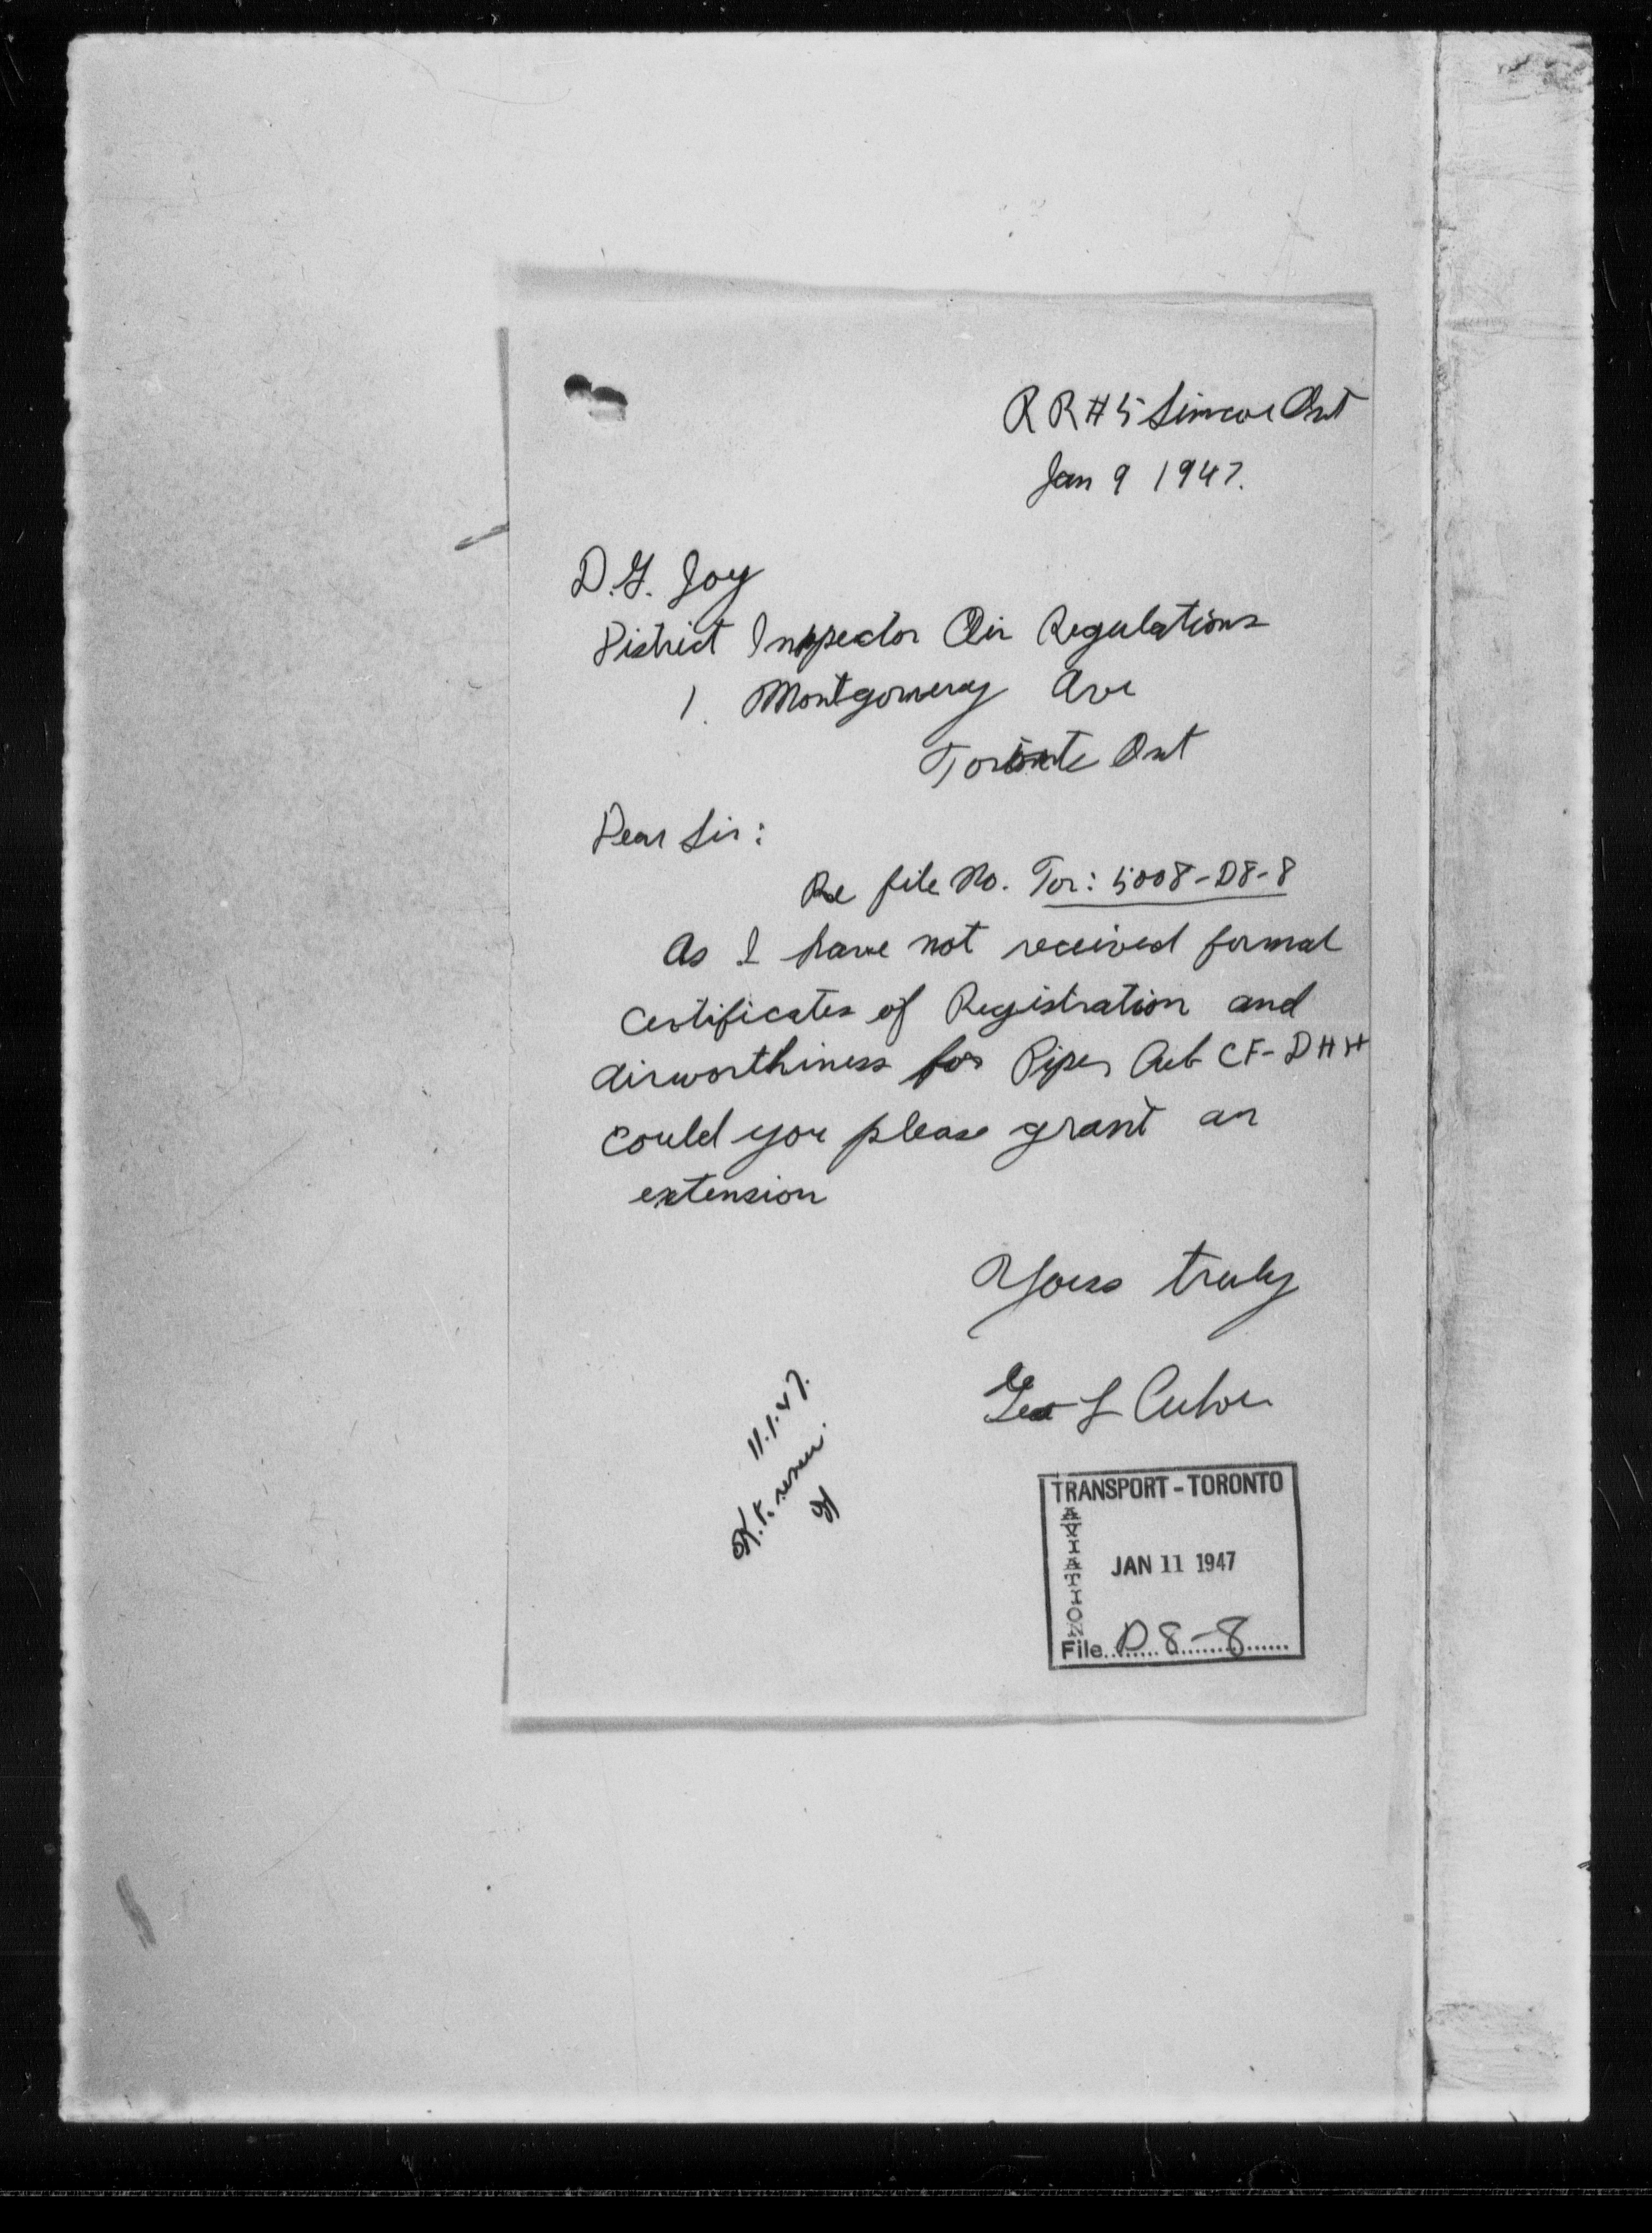 R R # 5 Simcoe Ont
Jan 9 1947.
D.G. Joy
District Inspector Air Regulations
1. Montgomery Ave
Toronto Ont
Dear Sir:
Re file No. Tor: 5008-D8-8
As I have not received formal
Certificates of Registration and
Airworthiness for Piper Cub CF-DHH
could you please grant an
extension
Yours truly
Geo L Culver
11.1.47.
TRANSPORT - TORONTO
AVIATION
JAN 11 1947
File D8-8